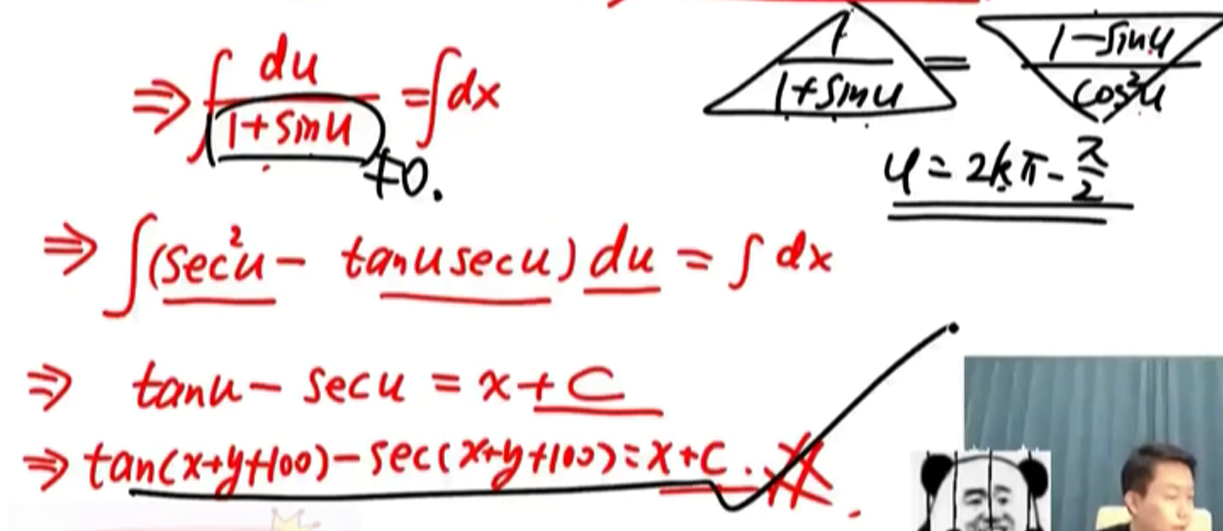 ⇒ ∫ du/(1+sinu) = ∫dx
≠0.
1/(1+sinu) = (1-sinu)/cos²u
u = 2kπ - π/2
⇒ ∫(sec²u - tanusecu) du = ∫dx
⇒ tanu - secu = x+C
⇒ tan(x+y+100) - sec(x+y+100) = x+C.